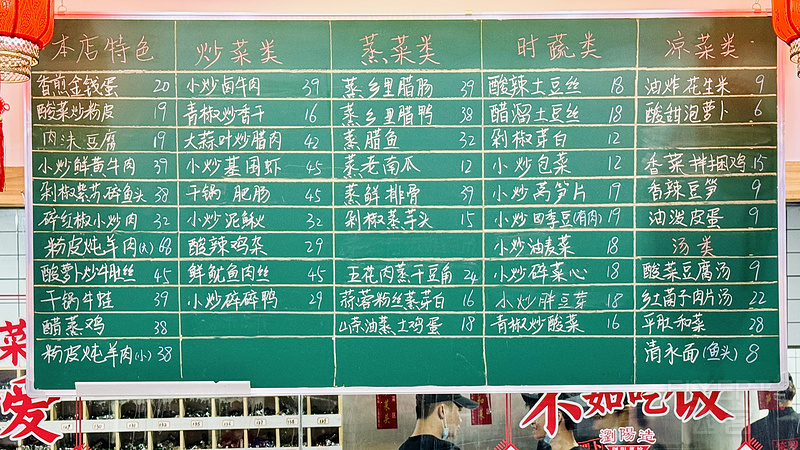 本店特色 炒菜类 蒸菜类 时蔬类 凉菜类
香煎金钱蛋 20 小炒卤牛肉 39 蒸乡里腊肠 39 酸辣土豆丝 18 油炸花生米 9
酸菜炒粉皮 19 青椒炒香干 16 蒸乡里腊鸭 38 醋溜土豆丝 18 酸甜泡萝卜 6
肉沫豆腐 19 大蒜叶炒腊肉 42 蒸腊鱼 32 剁椒芽白 12
小炒鲜黄牛肉 39 小炒基围虾 45 蒸老南瓜 12 小炒包菜 12 香菜拌捆鸡 15
剁椒蒸芳碎鱼头 38 干锅肥肠 45 蒸鲜排骨 39 小炒莴笋片 19 香辣豆笋 9
碎红椒小炒肉 32 小炒泥鳅 32 剁椒蒸芋头 15 小炒四季豆(有肉) 19 油泼皮蛋 9
粉皮炖羊肉(大) 68 酸辣鸡杂 29 小炒油麦菜 18 汤类
酸萝卜炒牛肚丝 45 鲜鱿鱼肉丝 45 五花肉蒸干豆角 24 小炒碎菜心 18 酸菜豆腐汤 9
干锅牛蛙 39 小炒碎碎鸭 29 蒜蓉粉丝蒸芽白 16 小炒胖豆芽 18 乡土菌子肉片汤 22
醋蒸鸡 38 山茶油蒸土鸡蛋 18 青椒炒酸菜 16 平肚和菜 28
粉皮炖羊肉(小) 38 清水面(鱼头) 8
菜
爱
不如吃饭
瀏陽造